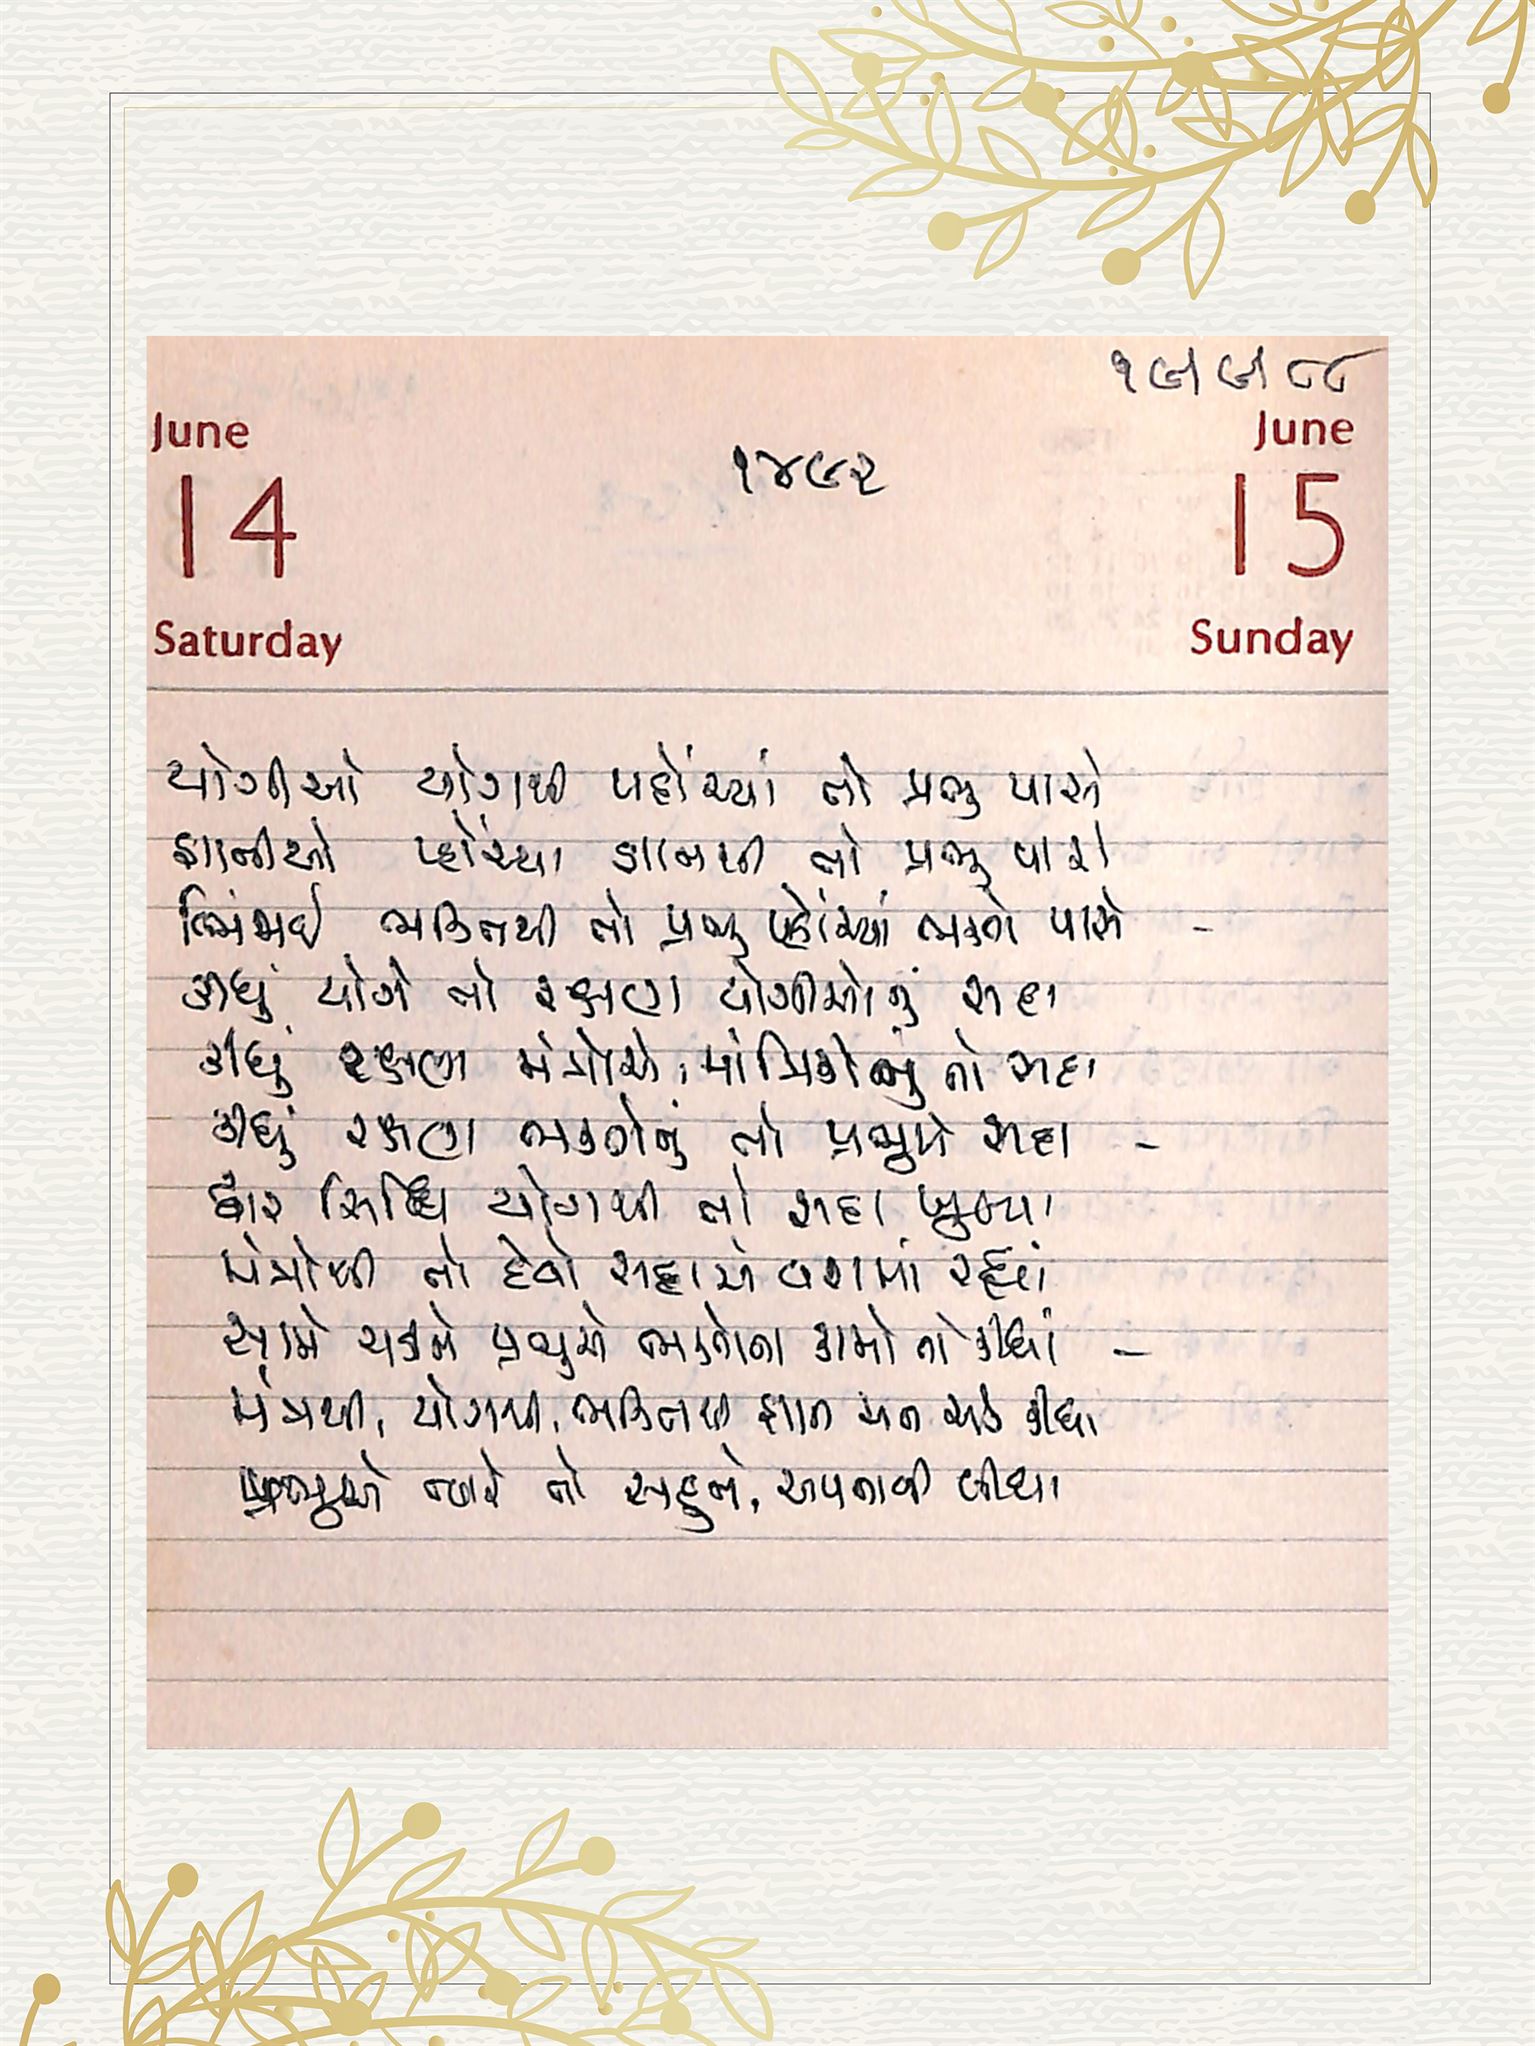 ૧૯૯૮૮
June
June
૧૪૯૨
14
15
Saturday
Sunday
યોગીઓ યોગથી પહોંચ્યાં તો પ્રભુ પાસે
જ્ઞાનીઓ પ્હોંચ્યા જ્ઞાનથી તો પ્રભુ પાસે
ખિંચાઈ ભક્તિથી તો પ્રભુ પહોંચ્યાં ભક્તો પાસે -
કીધું યોગે તો રક્ષણ યોગીઓનું સદા
કીધું રક્ષણ મંત્રોએ, માંત્રિકોનું તો સદા
કીધું રક્ષણ ભક્તોનું તો પ્રભુએ સદા -
દ્વાર સિધ્ધિ યોગથી તો સદા ખુલ્યા
મંત્રોથી તો દેવો સદાયે વશમાં રહ્યાં
સામે ચડીને પ્રભુએ ભક્તોના કામો તો કીધાં -
મંત્રથી, યોગથી, ભક્તિથી જ્ઞાન મન એક કીધા
પ્રભુએ ત્યારે તો સહુને, અપનાવી લીધા